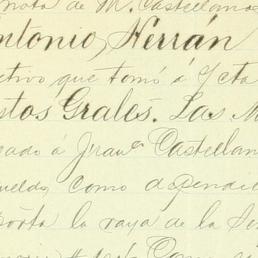 nota de M. Castellano
Antonio Herrán
ctivo que tomó á Icta
stos Grales. Las M
eado á Fran Castellan
ueldo, como dependi
porta la raya de la